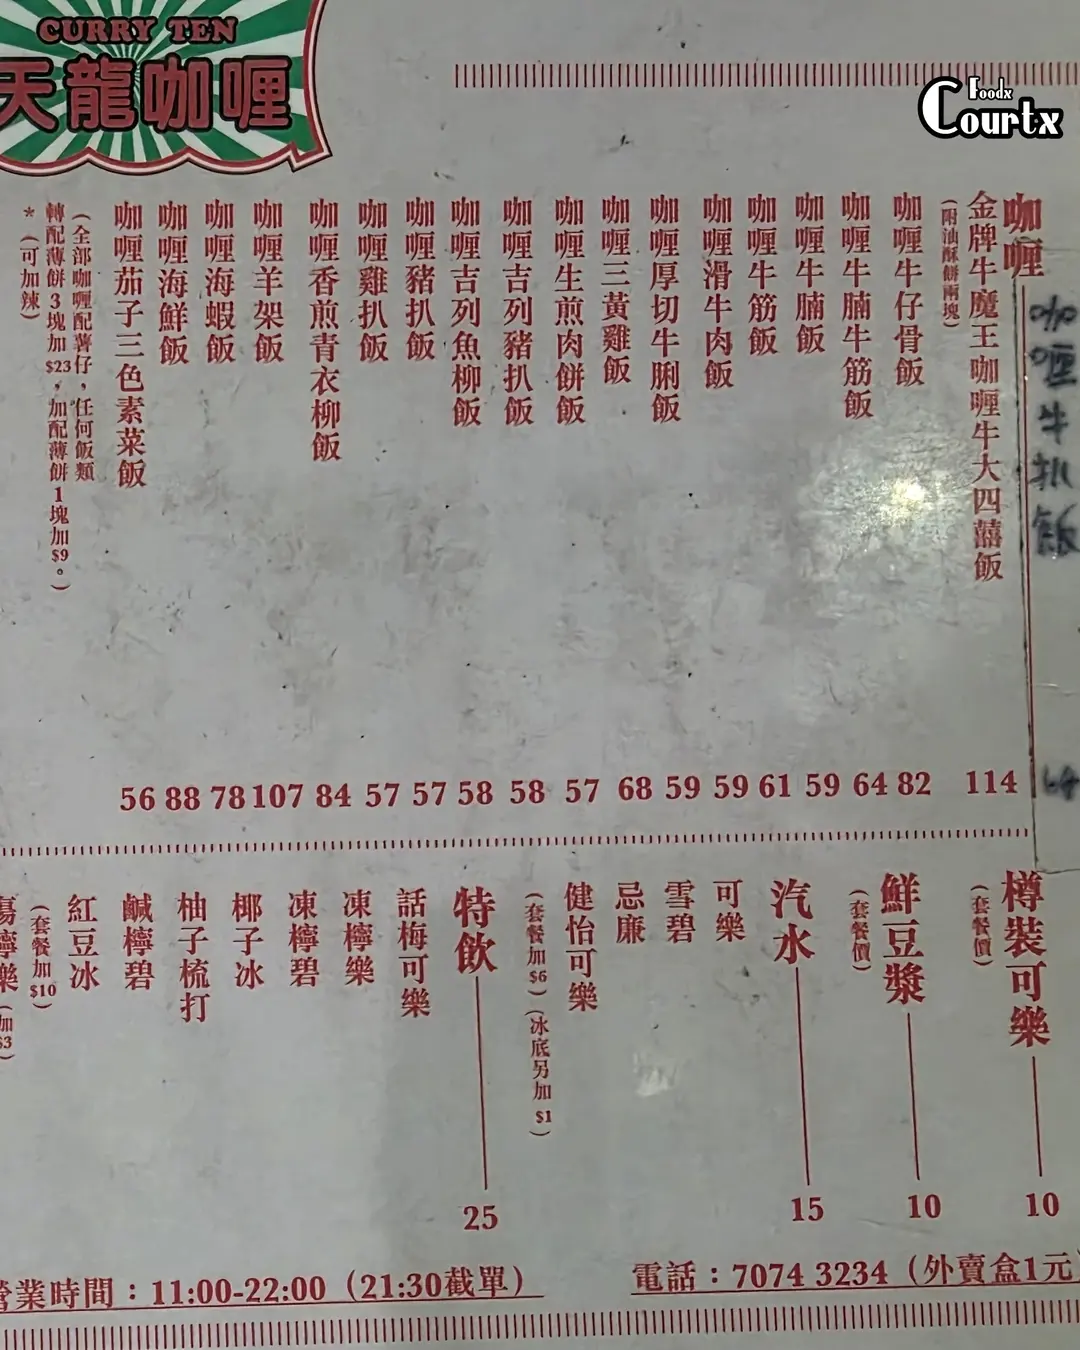 CURRY TEN
天龍咖喱
Foodx
Courtx
咖喱
咖喱牛扒飯
金牌牛魔王咖喱牛大四囍飯
（附油酥餅兩塊）
114
咖喱牛仔骨飯
82
咖喱牛腩牛筋飯
64
咖喱牛腩飯
59
咖喱牛筋飯
61
咖喱滑牛肉飯
59
咖喱厚切牛脷飯
59
咖喱三黃雞飯
68
咖喱生煎肉餅飯
57
咖喱吉列豬扒飯
58
咖喱吉列魚柳飯
58
咖喱豬扒飯
57
咖喱雞扒飯
57
咖喱香煎青衣柳飯
84
咖喱羊架飯
107
咖喱海蝦飯
78
咖喱海鮮飯
88
咖喱茄子三色素菜飯
56
（全部咖喱配薯仔，任何飯類
轉配薄餅3塊加$23，加配薄餅1塊加$9。）
*（可加辣）
樽裝可樂
10
（套餐價）
鮮豆漿
10
（套餐價）
汽水
15
可樂
雪碧
忌廉
健怡可樂
（套餐加$6）（冰底另加$1）
特飲
25
話梅可樂
凍檸樂
凍檸碧
椰子冰
柚子梳打
鹹檸碧
紅豆冰
（套餐加$10）
檸樂（加$3）
電話：7074 3234（外賣盒1元
營業時間：11:00-22:00（21:30截單）